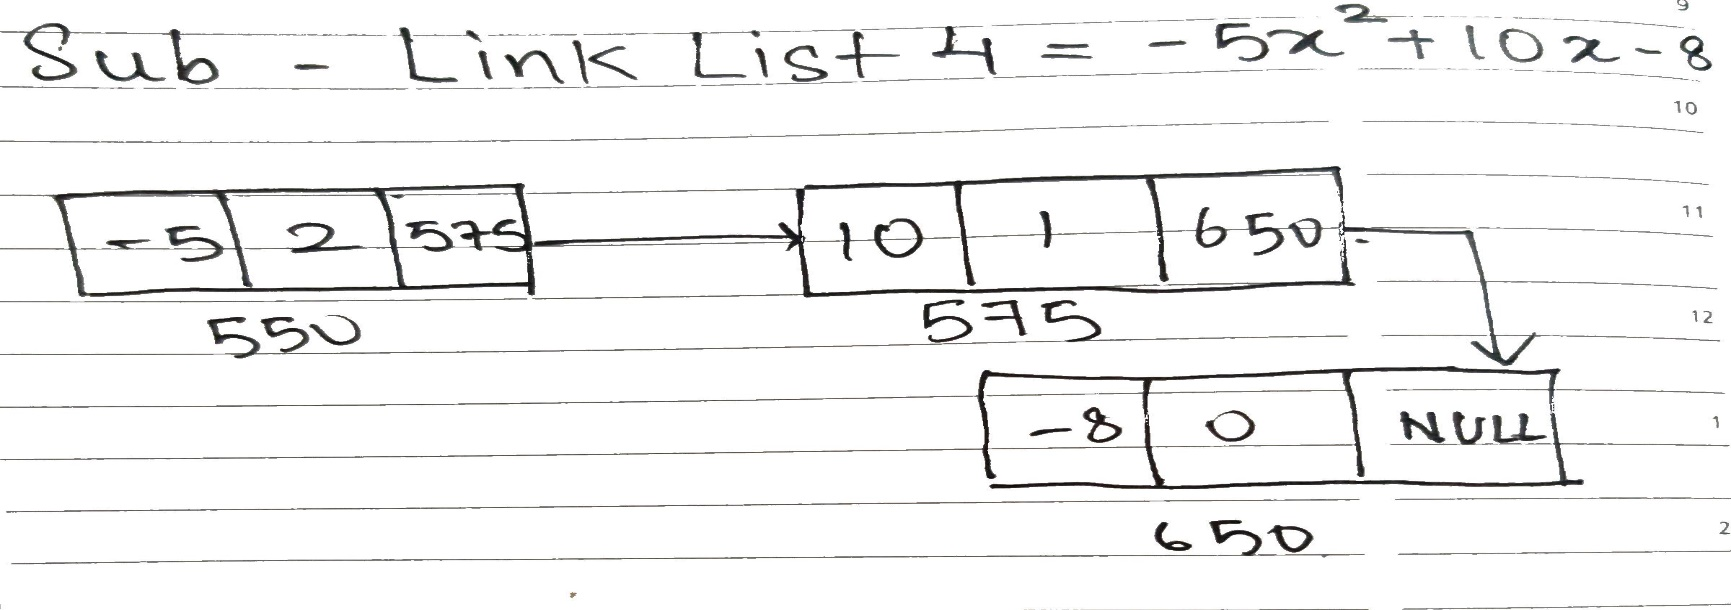 Sub - Link List 4 = -5x² + 10x - 8
-5 2 575 10 1 650
550 575
-8 0 NULL
650
9
10
11
12
1
2